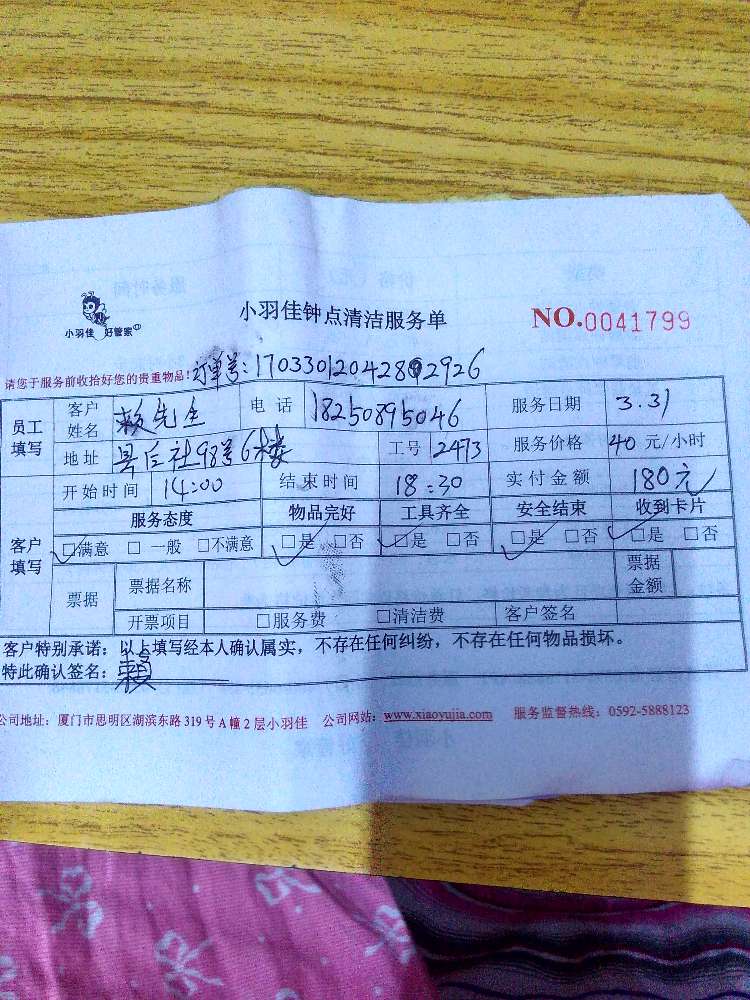 小羽佳 好管家
小羽佳钟点清洁服务单
NO.0041799
请您于服务前收拾好您的贵重物品!
订单号:1703301204282926
员工填写 客户姓名 赖先生 电话 18250895046 服务日期 3.31
地址 县后社98号6楼 工号 2473 服务价格 40 元/小时
开始时间 14:00 结束时间 18:30 实付金额 180元
客户填写 服务态度 物品完好 工具齐全 安全结束 收到卡片
□满意 □一般 □不满意 □是 □否 □是 □否 □是 □否 □是 □否
票据 票据名称 票据金额
开票项目 □服务费 □清洁费 客户签名
客户特别承诺:以上填写经本人确认属实,不存在任何纠纷,不存在任何物品损坏。
特此确认签名:赖
公司地址:厦门市思明区湖滨东路319号A幢2层小羽佳 公司网站:www.xiaoyujia.com 服务监督热线:0592-5888123